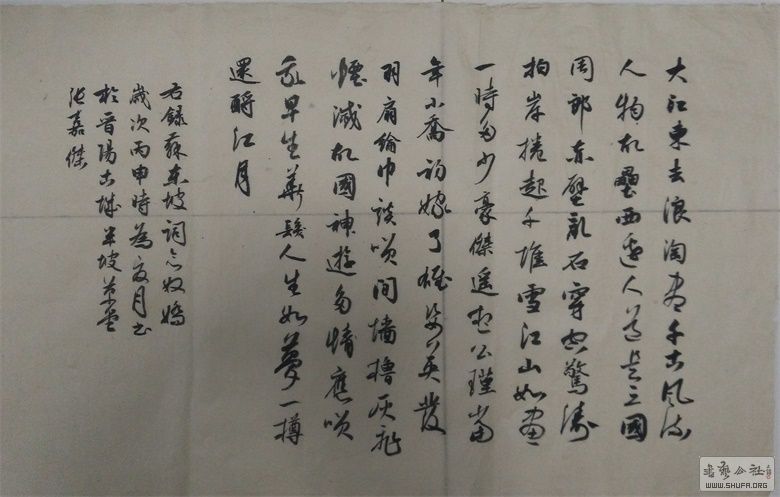 大江東去浪淘盡千古風流
人物故壘西邊人道是三國
周郎赤壁亂石穿空驚濤
拍岸捲起千堆雪江山如畫
一時多少豪傑遥想公瑾當
年小喬初嫁了雄姿英發
羽扇綸巾談笑間墻櫓灰飛
煙滅故國神遊多情應笑
我早生華髮人生如夢一樽
還酹江月
右錄蘇東坡詞念奴嬌
歲次丙申時為月書
於晋陽古城半坡草堂
張嘉傑
書藝公社
WWW.SHUFA.ORG